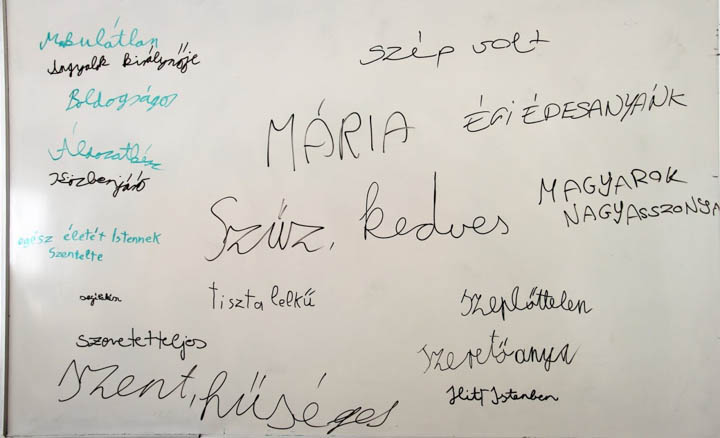 Makulátlan
Angyalok Királynője
Boldogságos
Áldozatkész
Közbenjáró
egész életét Istennek
Szentelte
szép volt
MÁRIA
ÉGI ÉDESANYÁNK
MAGYAROK
NAGYASSZONYA
Szűz, kedves
tiszta lelkű
Szeplőttelen
Szovetetteljes
Szerető anya
Hitt Istenben
Szent, hűséges